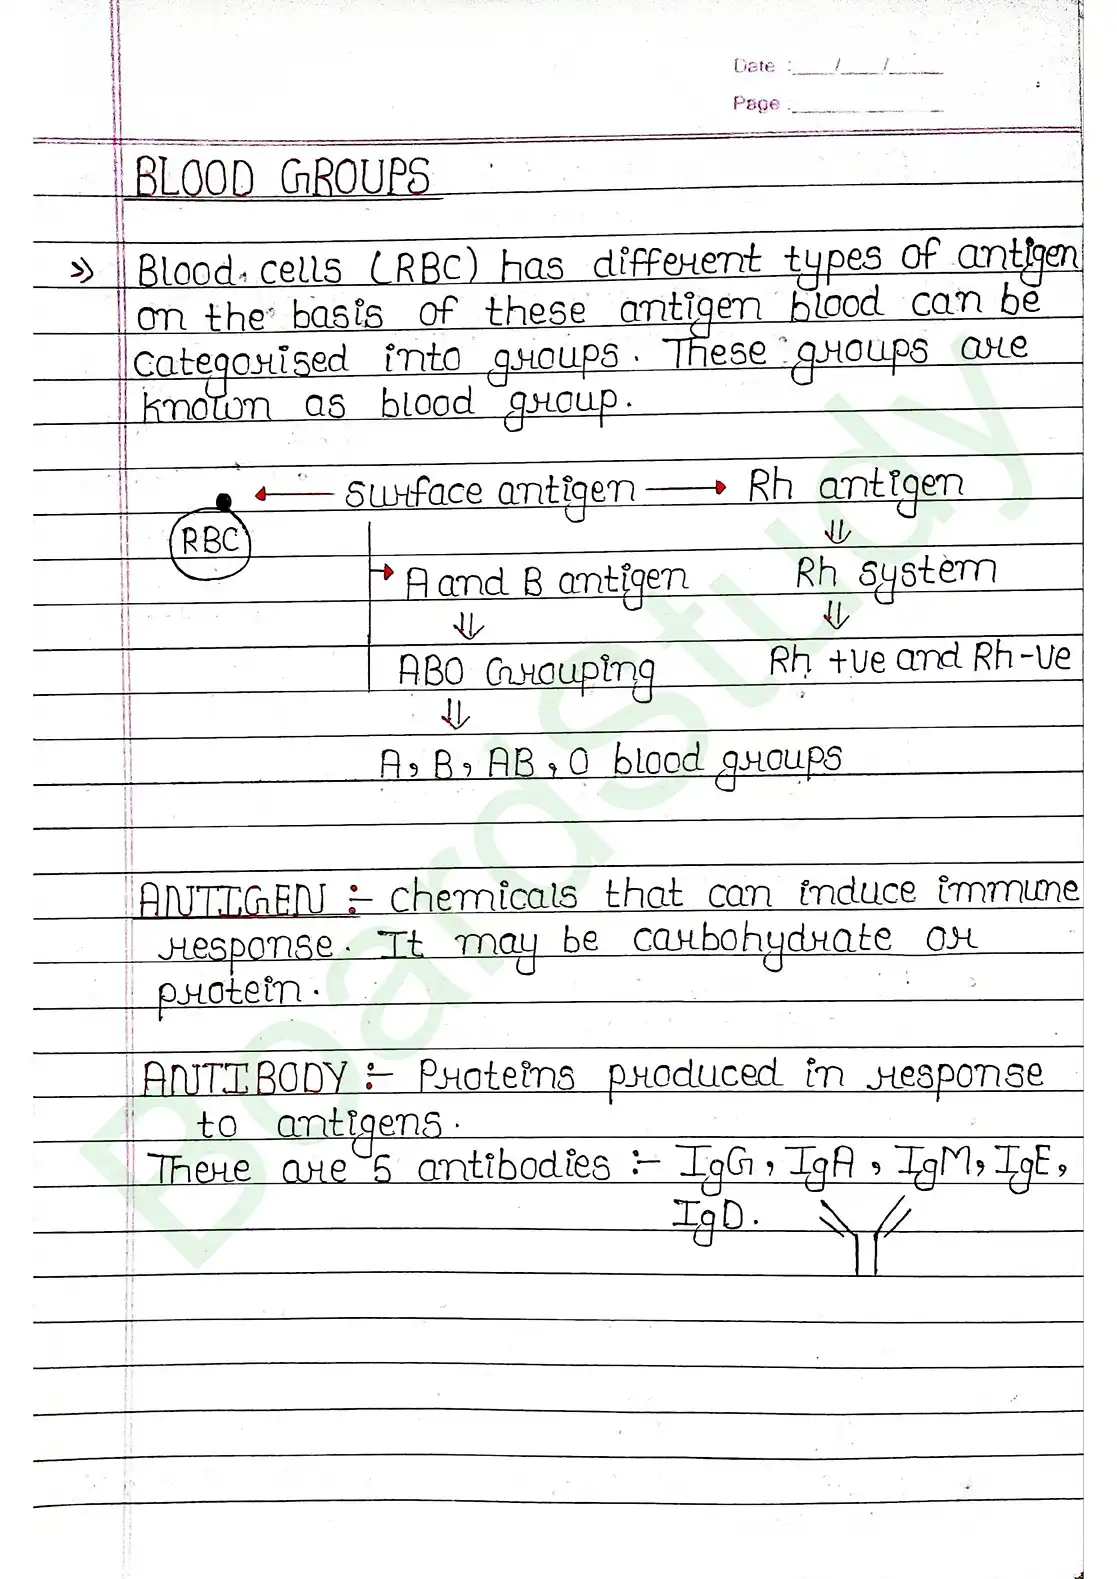 Date :___/___/____
Page :____________
BLOOD GROUPS
Blood cells (RBC) has different types of antigen
on the basis of these antigen blood can be
categorised into groups. These groups are
known as blood group.
surface antigen → Rh antigen
RBC
A and B antigen Rh system
ABO Grouping Rh +ve and Rh -ve
A, B, AB, O blood groups
ANTIGEN :- chemicals that can induce immune
response. It may be carbohydrate or
protein.
ANTIBODY :- Proteins produced in response
to antigens.
There are 5 antibodies :- IgG, IgA, IgM, IgE,
IgD.
BoardStudy